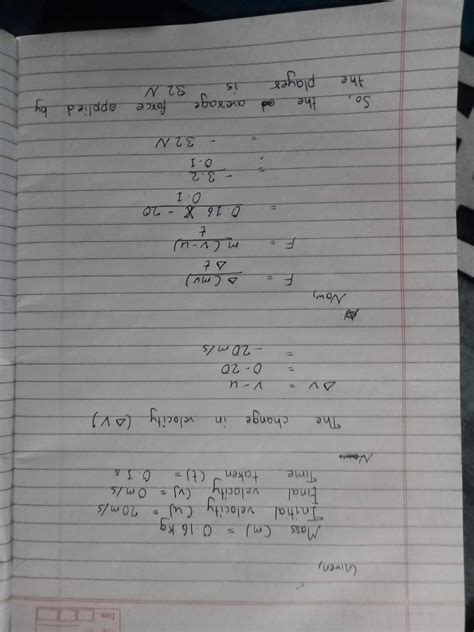 Date
Given,
Mass (m) = 0.16 kg
Initial velocity (u) = 20 m/s
Final velocity (v) = 0 m/s
Time taken (t) = 0.1 s
The change in velocity (ΔV)
ΔV = v - u
= 0-20
= -20 m/s
Now,
F = Δ(mv)
Δt
F = m (v-u)
t
= 0.16 X -20
0.1
= -3.2
0.1
= - 32 N
So, the average force applied by
the player is 32 N.